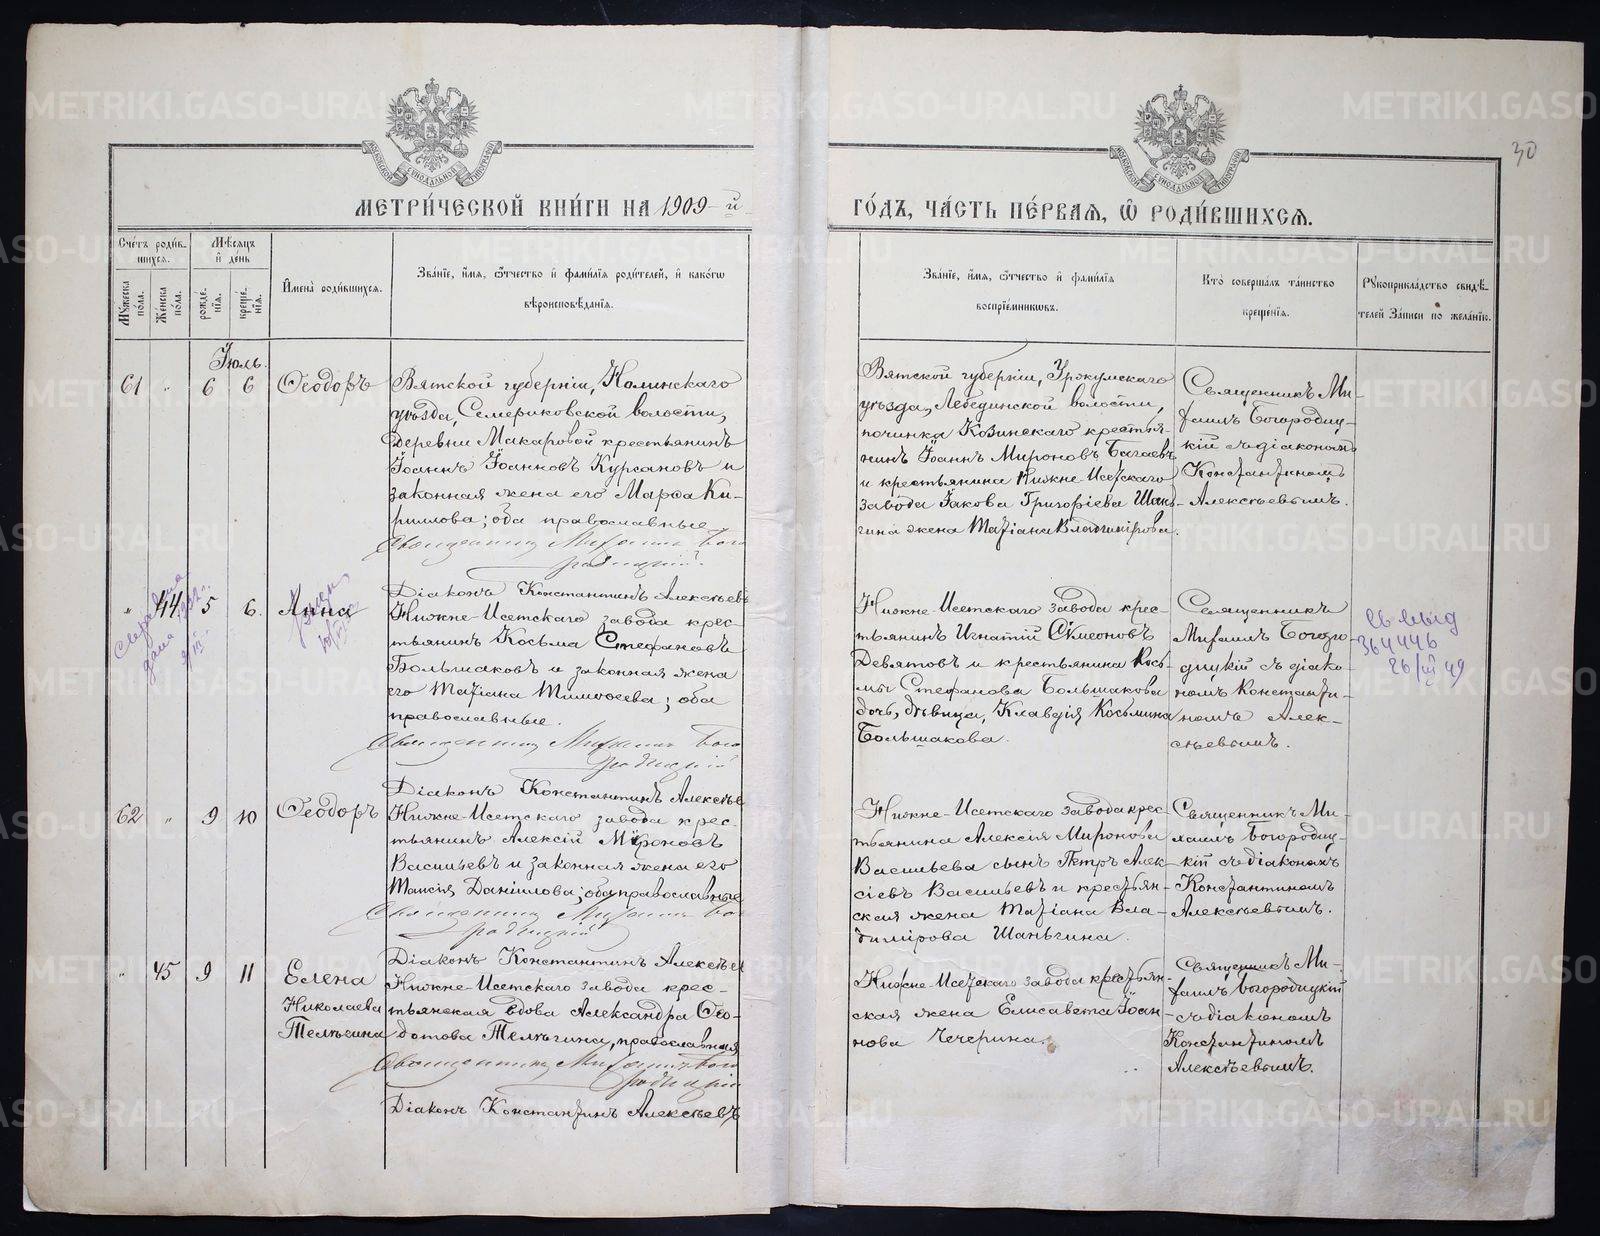 30
МЕТРИ́ЧЕСКОЙ КНИ́ГИ НА 1909-й
ГО́ДЪ, ЧА́СТЬ ПЕ́РВАѦ, Ѿ РОДИ́ВШИХСѦ.
Сче́тъ роди́в-
шихся.
Мѣ́сяцъ
и҆ де́нь
Мꙋ́жеска
по́ла.
Же́нска
по́ла.
рожде́-
нїѧ.
креще́-
нїѧ.
И҆мена̀ роди́вшихсѧ.
Зва́нїе, и҆́мѧ, ѻ҆́тчество и҆ фами́лїѧ роди́телей, и҆ како́гѡ
вѣроисповѣ́данїѧ.
Зва́нїе, и҆́мѧ, ѻ҆́тчество и҆ фами́лїѧ
воспрїе́мникѡвъ.
Кто̀ соверша́лъ та́инство
креще́нїѧ.
Рꙋкоприкла́дство свидѣ́-
телей за́писи по жела́нїю.
Іюль.
61 " 6 6 Ѳеодоръ
Вятской губерніи, Нолинскаго
уѣзда, Семериковской волости,
деревни Макаровой крестьянинъ
Іоаннъ Іоанновъ Курсановъ и
законная жена его Марѳа Ки-
риллова; оба православные
Священникъ Михаилъ Бого
родицкій.
Діаконъ Константинъ Алексѣевъ
Вятской губерніи, Уржумскаго
уѣзда, Лебединской волости,
починка Козинскаго крестья-
нинъ Іоаннъ Мироновъ Багаевъ
и крестьянина Нижне-Исетскаго
завода Іакова Григоріева Шань-
гина жена Татіана Владимірова.
Священникъ Ми-
хаилъ Богородиц-
кій съ діакономъ
Константиномъ
Алексѣевымъ.
" 44 5 6. Анна
Нижне-Исетскаго завода крес-
тьянинъ Косьма Стефановъ
Большаковъ и законная жена
его Татіана Тимоѳеева; оба
православные.
Священникъ Михаилъ Бого
родицкій
Діаконъ Константинъ Алексѣе
Нижне-Исетскаго завода крес-
тьянинъ Игнатій Сѵмеоновъ
Девятовъ и крестьянина Кось-
мы Стефанова Большакова
дочь, дѣвица, Клавдія Косьмина
Большакова.
Священникъ
Михаилъ Богоро-
дицкій съ діако-
номъ Константи-
номъ Алек-
сѣевымъ.
364446
26/III 49
62 " 9 10 Ѳеодоръ
Нижне-Исетскаго завода крес-
тьянинъ Алексій Мѵроновъ
Васильевъ и законная жена его
Таисія Даніилова; оба православные
Священникъ Михаилъ Бо
родицкій
Діаконъ Константинъ Алексѣев
Нижне-Исетскаго завода крес-
тьянина Алексія Миронова
Васильева сынъ Петръ Алек-
сіевъ Васильевъ и крестьян-
ская жена Татіана Вла-
димірова Шаньгина.
Священникъ Ми-
хаилъ Богородиц-
кій съ діакономъ
Константиномъ
Алексѣевымъ.
" 45 9 11 Елена
Николаева
Телѣгина
Нижне-Исетскаго завода крес-
тьянская вдова Александра Ѳео-
дотова Телѣгина, православная
Священникъ Михаилъ Бого
родицкій
Діаконъ Константинъ Алексѣевъ
Нижне-Исетскаго завода крестьян-
ская жена Елисавета Іоан-
нова Чечерина.
Священникъ Ми-
хаилъ Богородицкій
съ діакономъ
Константиномъ
Алексѣевымъ.
METRIKI.GASO-URAL.RU